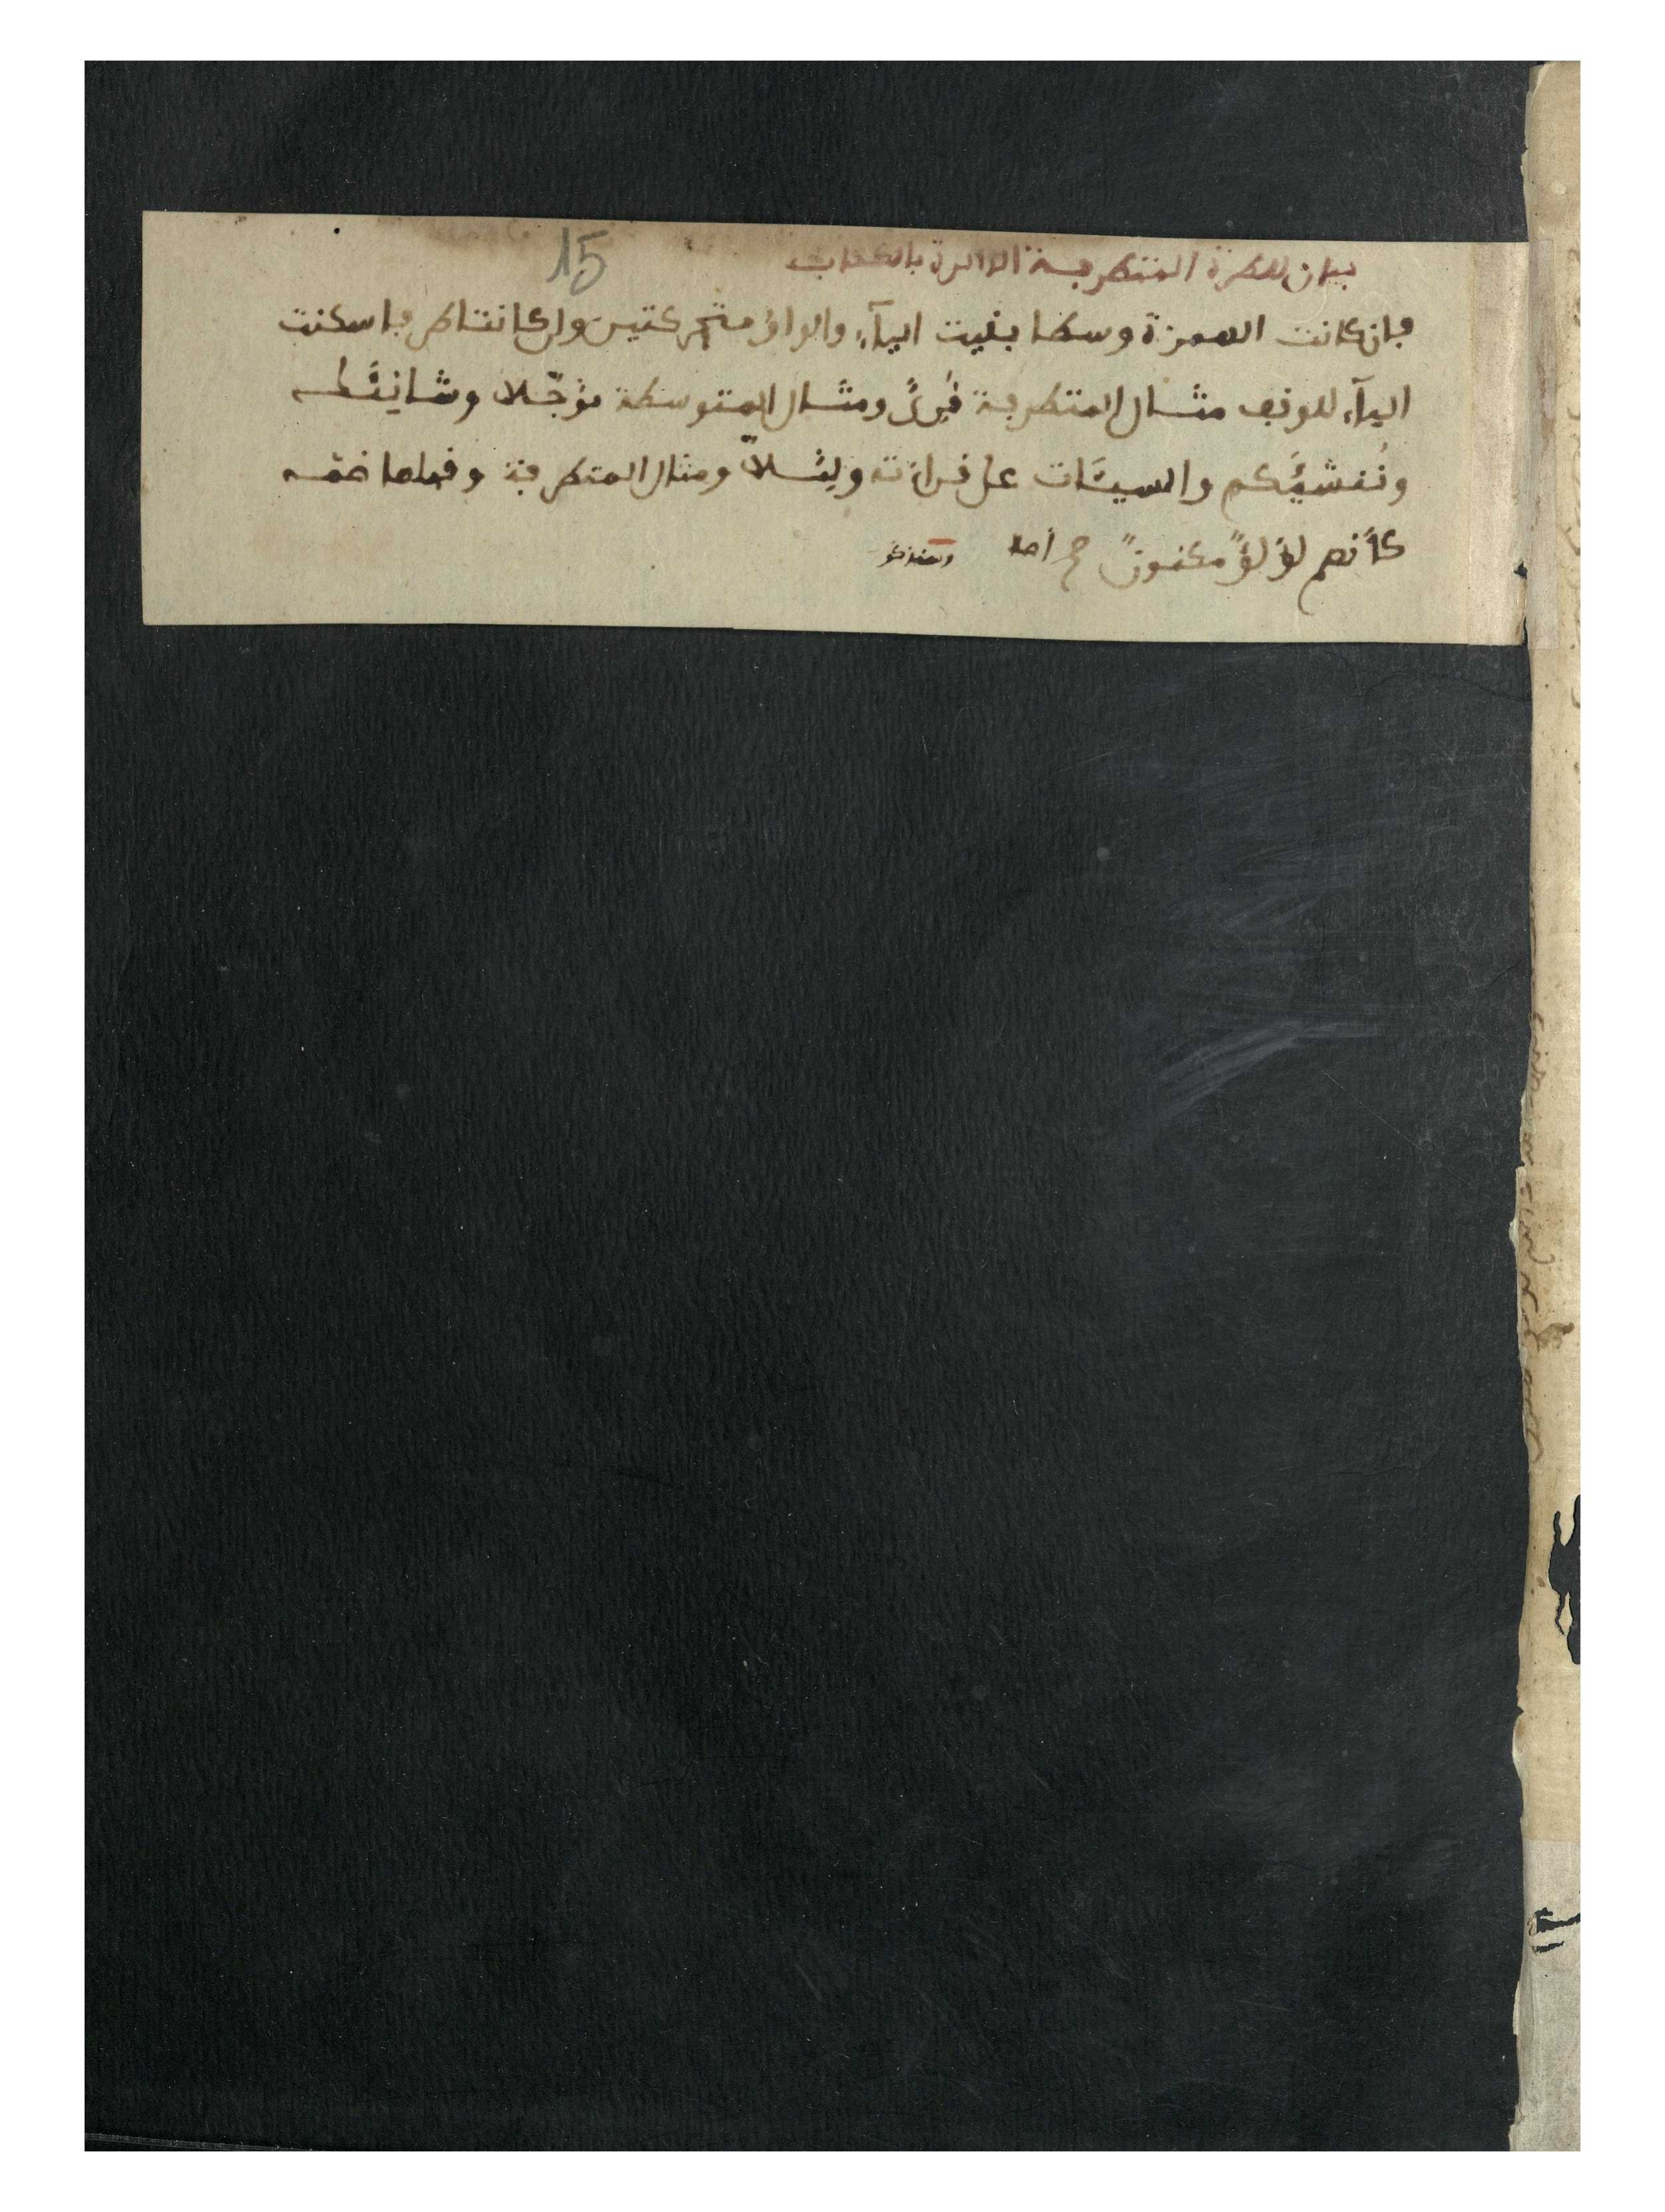 15
بيان للطرة المتطرفة الدائرة بالكتاب
فان كانت الهمزة وسطا بقيت الياء والواو متحركتين وان كانت طرفا سكنت
الياء للوقف مثال المتطرفة قُرِئَ ومثال المتوسطة مؤجّلا وشانِئَك
ونُنشئَكم والسيئَات على قراءته ولِئَلاّ ومثال المتطرفة وقبلها ضمة
كأنهم لؤلؤٌ مكنونٌ